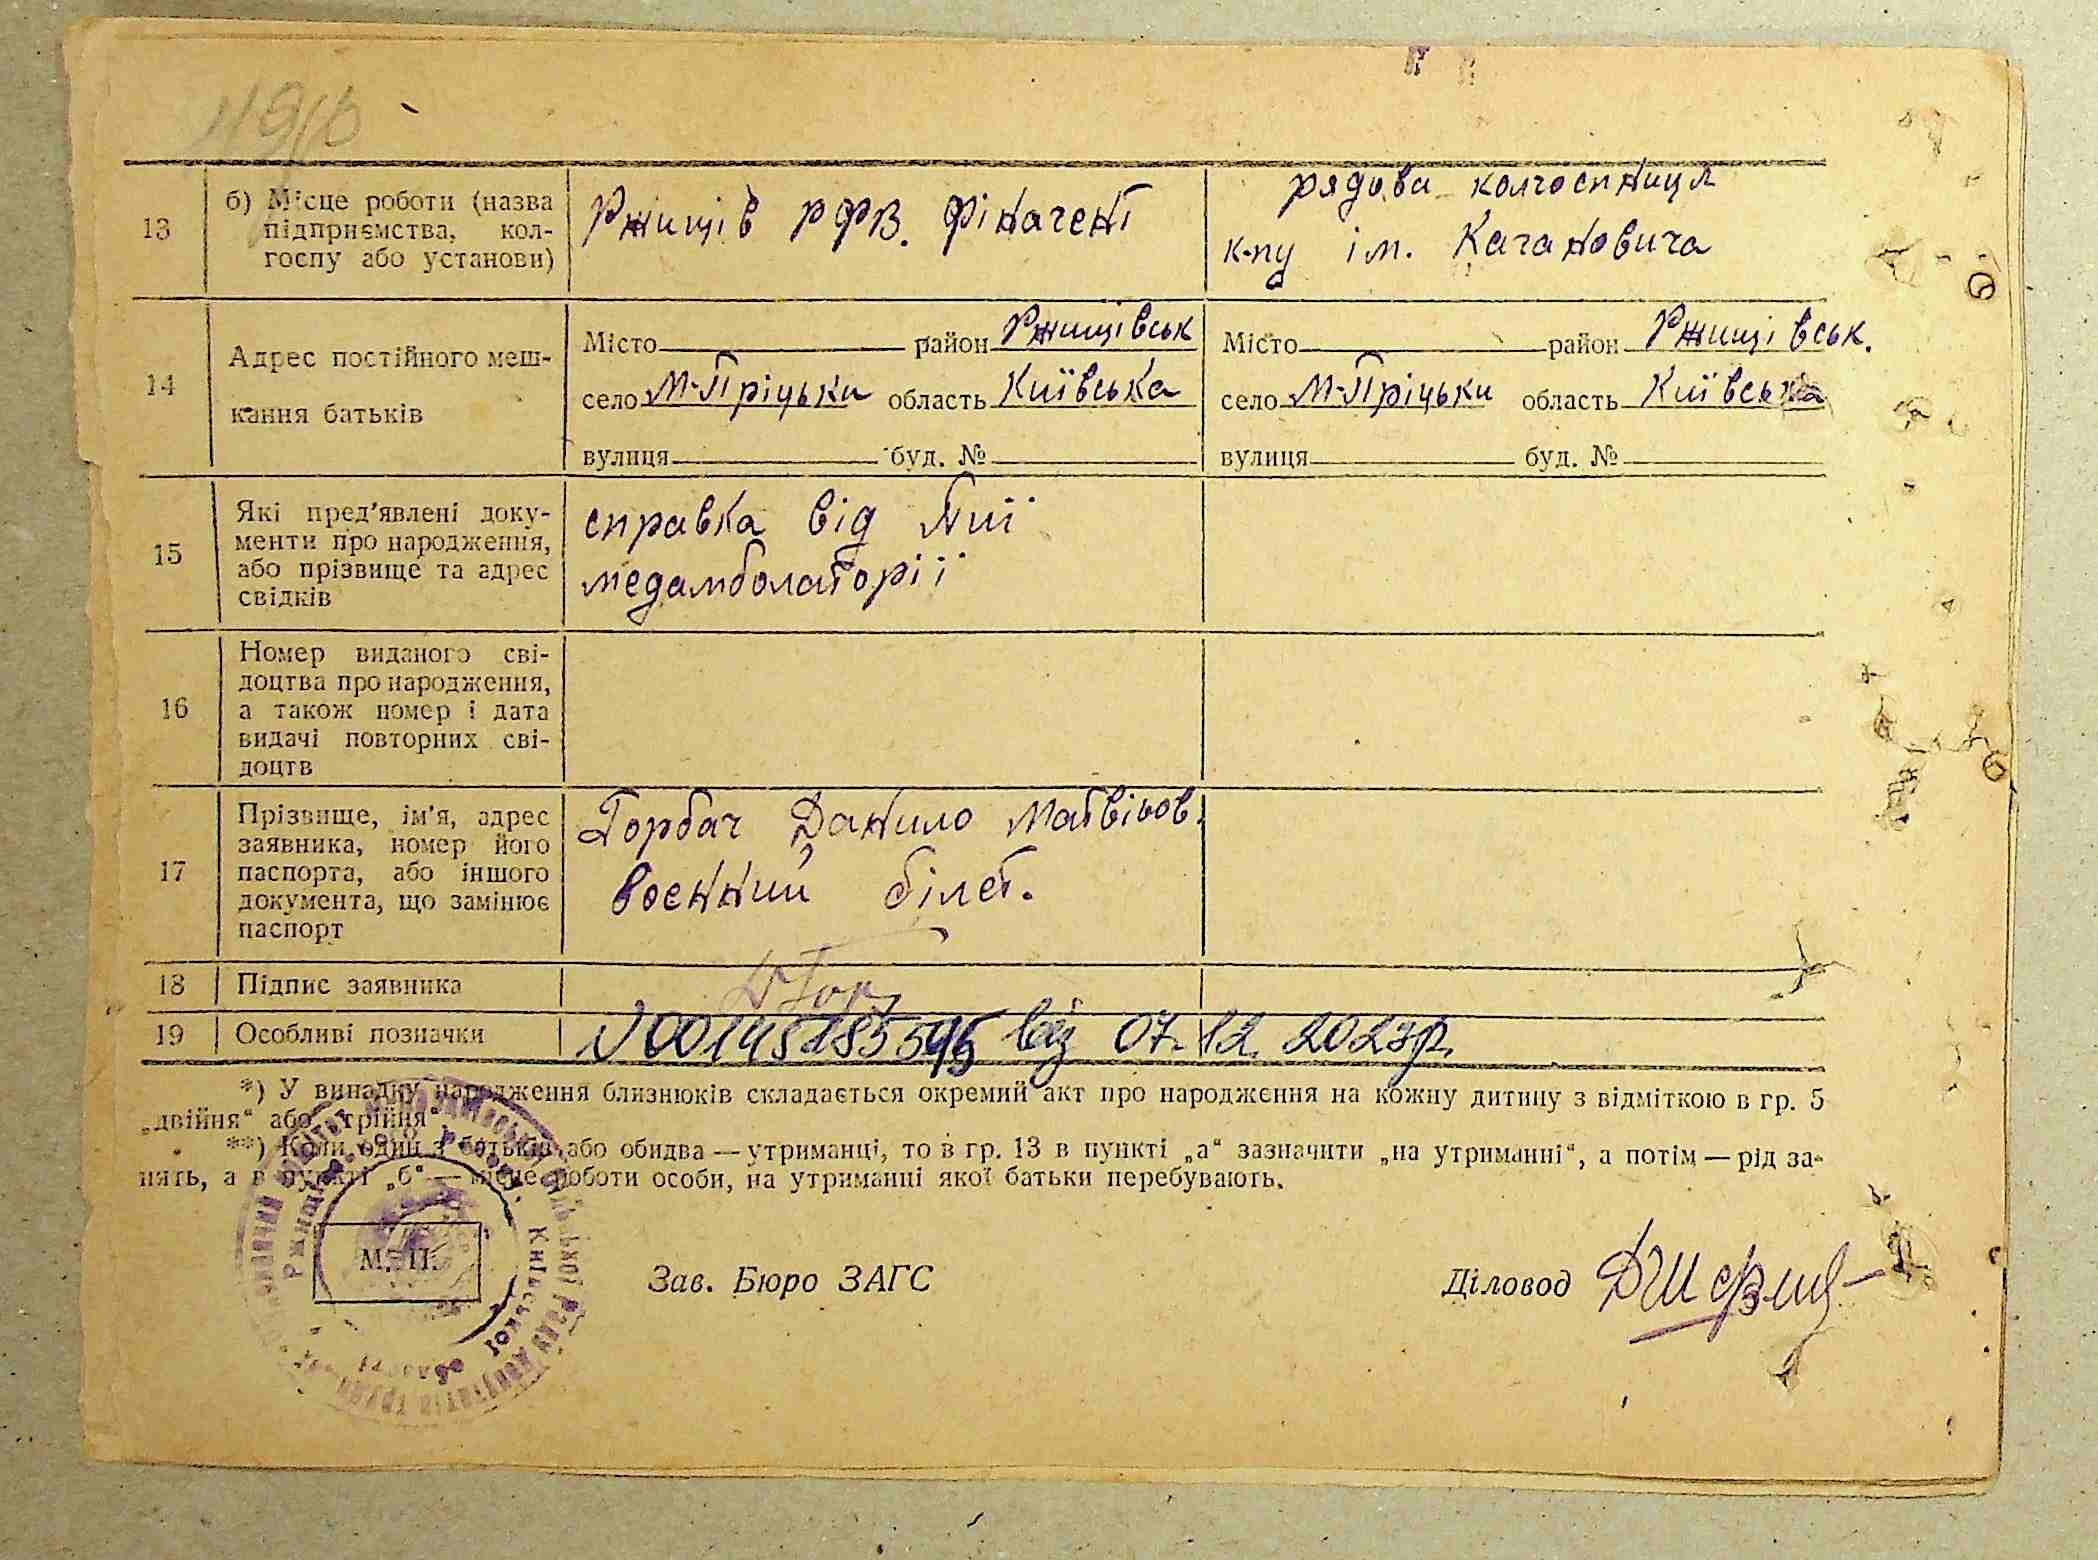 13
б) Місце роботи (назва
підприємства, кол-
госпу або установи)
Ржищів РФВ. фінагент
рядова колгоспниця
к-пу ім. Кагановича
14
Адрес постійного меш-
кання батьків
Місто район Ржищівськ
село М-Пріцьки область Київська
вулиця буд. №
Місто район Ржищівськ.
село М-Пріцьки область Київська
вулиця буд. №
15
Які пред'явлені доку-
менти про народження,
або прізвище та адрес
свідків
справка від
медамболаторії
16
Номер виданого сві-
доцтва про народження,
а також номер і дата
видачі повторних сві-
доцтв
17
Прізвище, ім'я, адрес
заявника, номер його
паспорта, або іншого
документа, що замінює
паспорт
Горбач Данило Матвійов.
воєнний білет.
18
Підпис заявника
19
Особливі позначки
від 07.12.2023р.
*) У випадку народження близнюків складається окремий акт про народження на кожну дитину з відміткою в гр. 5
„двійня“ або „трійня“.
**) Коли один з батьків або обидва — утриманці, то в гр. 13 в пункті „а“ зазначити „на утриманні“, а потім — рід за-
нять, а в пункті „б“ — місце роботи особи, на утриманні якої батьки перебувають.
М. П.
Зав. Бюро ЗАГС
Діловод